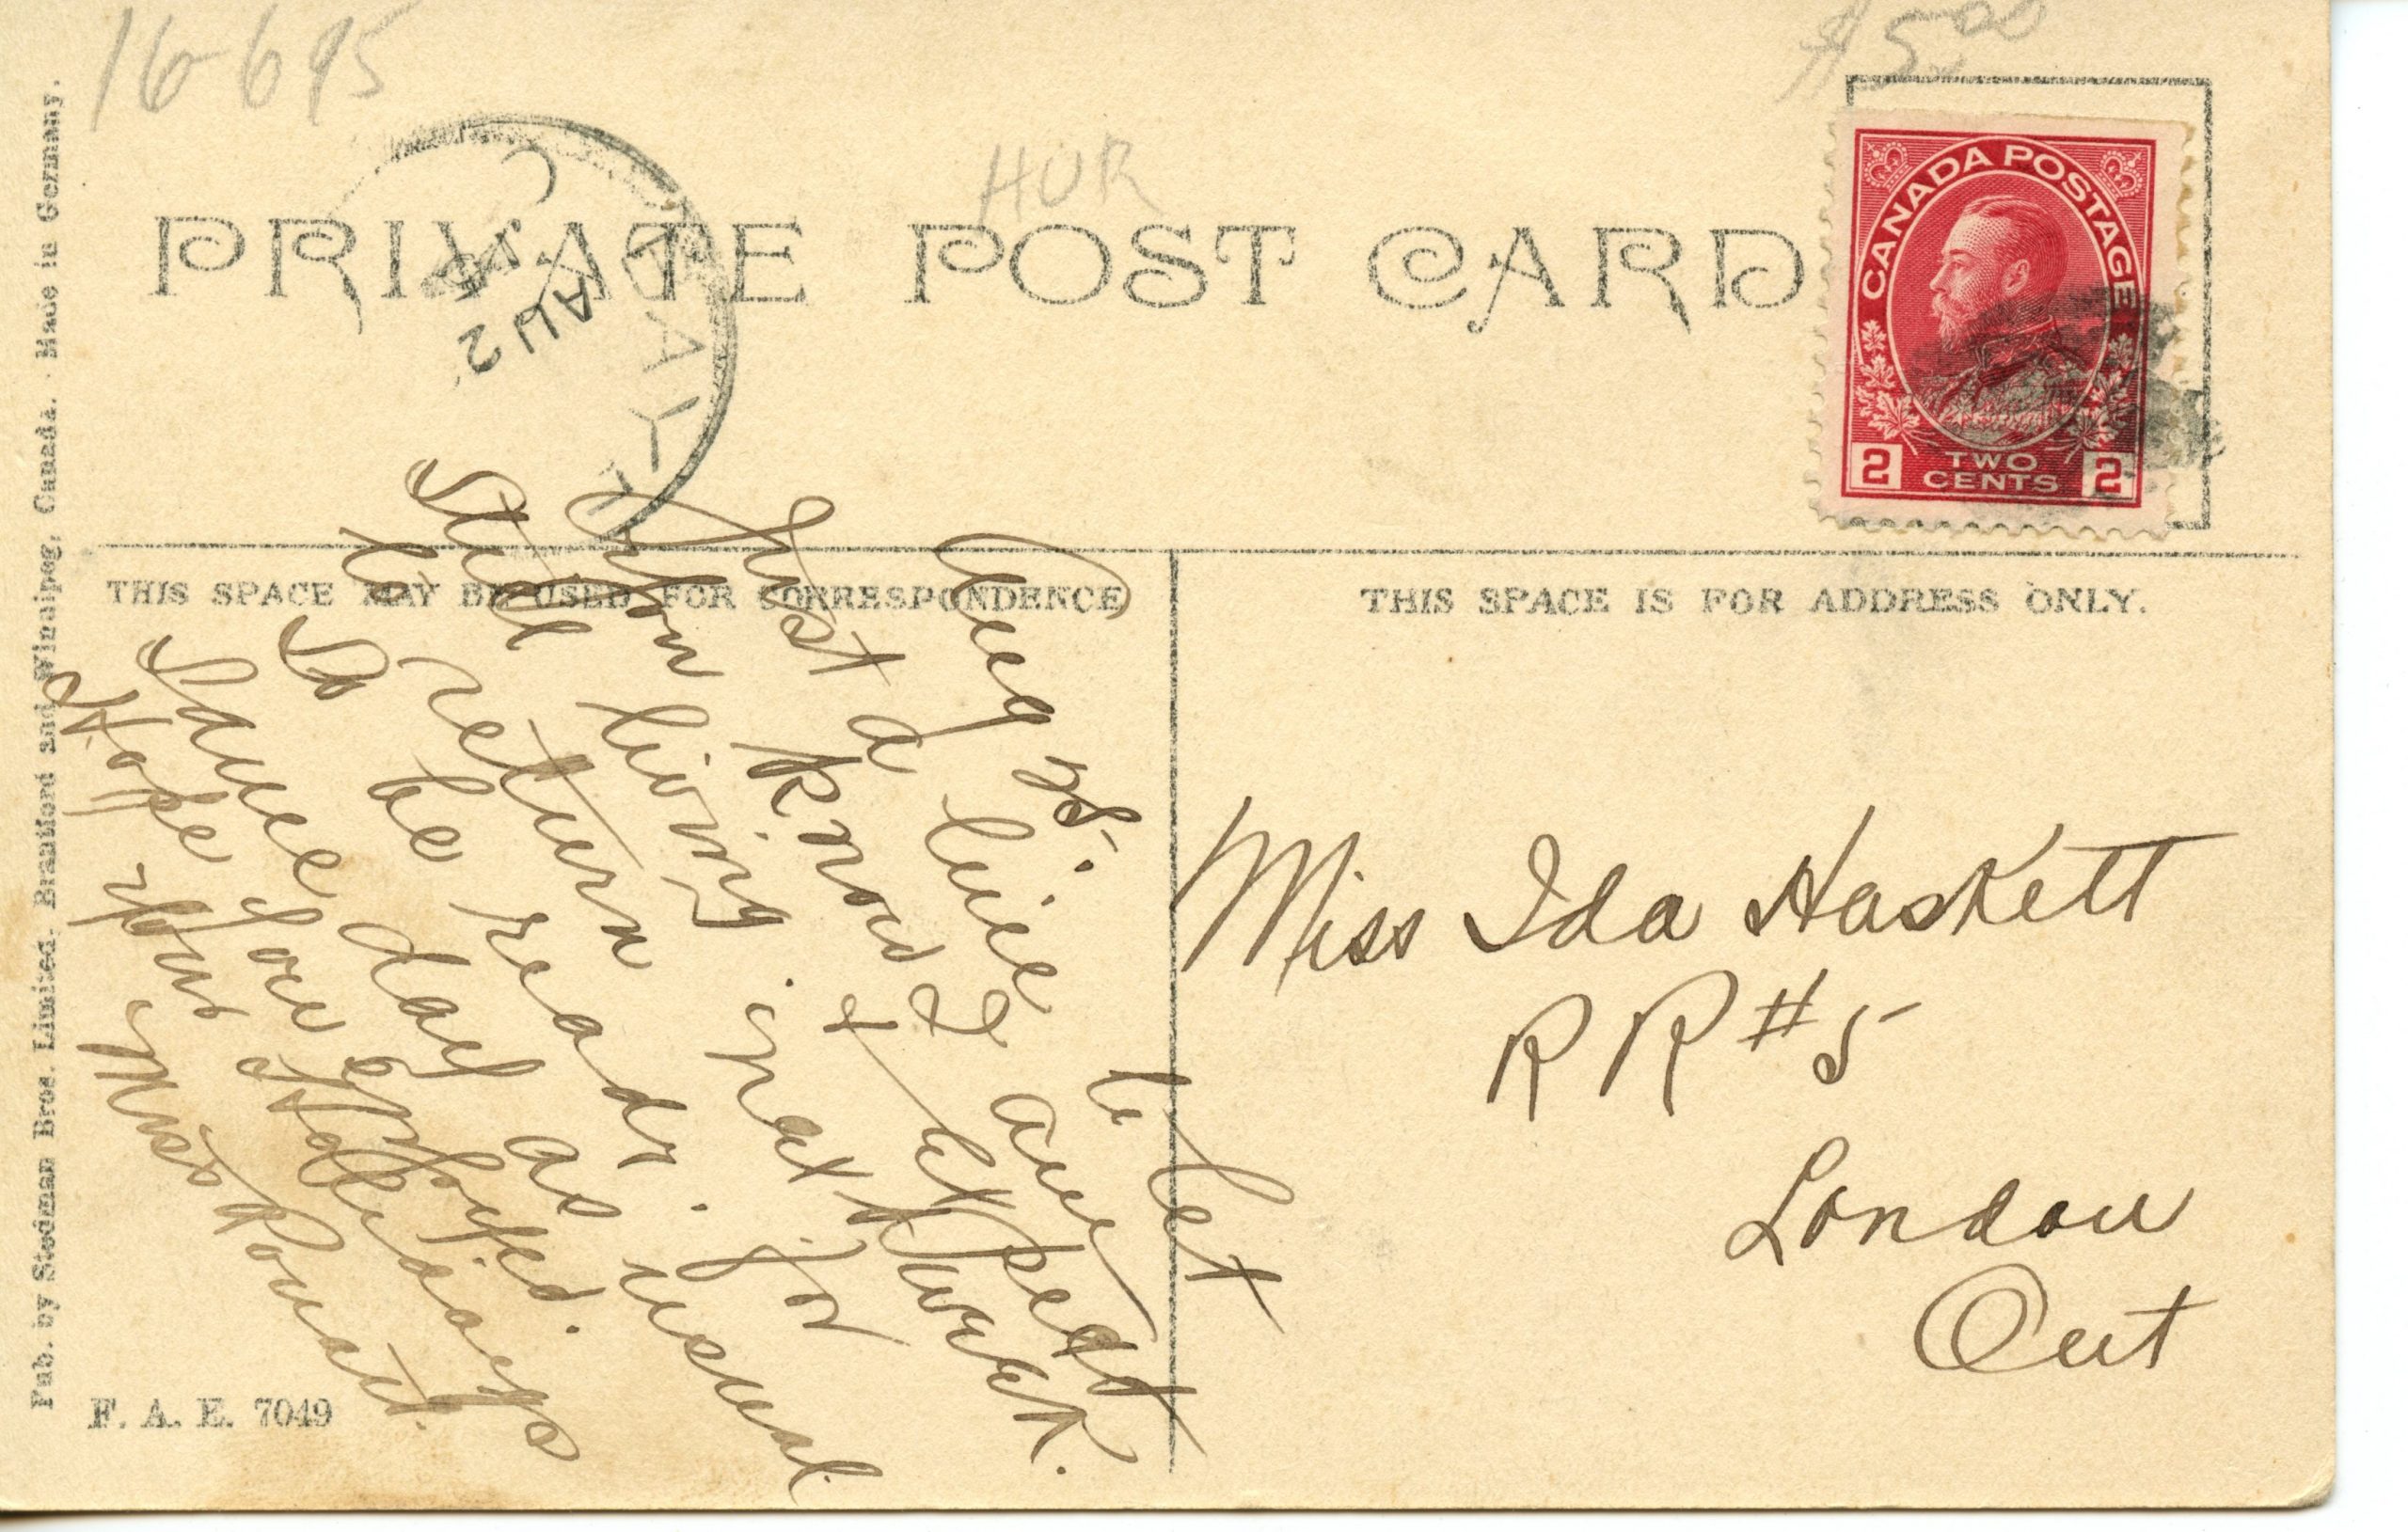 16-695
$5.00
HUR
PRIVATE POST CARD
AU 2
CANADA POSTAGE
2 TWO CENTS 2
THIS SPACE MAY BE USED FOR CORRESPONDENCE
THIS SPACE IS FOR ADDRESS ONLY.
Aug 25.
Just a line to let
you know I am
Still living &
to return next week.
So be ready for
Same day as usual.
Hope you enjoyed
your Holidays
Miss
Miss Ida Haskett
RR #5
London
Ont
Pub. by Stedman Bros. Limited, Brantford and Winnipeg, Canada. Made in Germany.
F. A. E. 7049